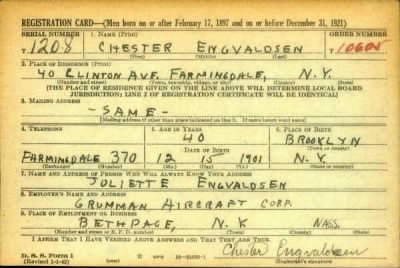 REGISTRATION CARD—(Men born on or after February 17, 1897 and on or before December 31, 1921)
SERIAL NUMBER 1. NAME (Print) ORDER NUMBER
T1208 CHESTER ENGVALDSEN
(First) (Middle) (Last)
2. PLACE OF RESIDENCE (Print)
40 CLINTON AVE, FARMINGDALE, N.Y.
(Number and street) (Town, township, village, or city) (County) (State)
[THE PLACE OF RESIDENCE GIVEN ON THE LINE ABOVE WILL DETERMINE LOCAL BOARD
JURISDICTION; LINE 2 OF REGISTRATION CERTIFICATE WILL BE IDENTICAL]
3. MAILING ADDRESS
- SAME -
[Mailing address if other than place indicated on line 2. If same insert word same]
4. TELEPHONE 5. AGE IN YEARS 6. PLACE OF BIRTH
40 BROOKLYN
DATE OF BIRTH (Town or county)
FARMINGDALE 370 12 15 1901 N.Y.
(Exchange) (Number) (Mo.) (Day) (Yr.) (State or country)
7. NAME AND ADDRESS OF PERSON WHO WILL ALWAYS KNOW YOUR ADDRESS
JULIETTE ENGVALDSEN
8. EMPLOYER'S NAME AND ADDRESS
GRUMMAN AIRCRAFT CORP.
9. PLACE OF EMPLOYMENT OR BUSINESS
BETHPAGE, N.Y. NASS.
(Number and street or R. F. D. number) (Town) (County) (State)
I AFFIRM THAT I HAVE VERIFIED ABOVE ANSWERS AND THAT THEY ARE TRUE.
D. S. S. Form 1
(Revised 1-1-42) GPO 16-21630-1 Chester Engvaldsen
(Registrant's signature)